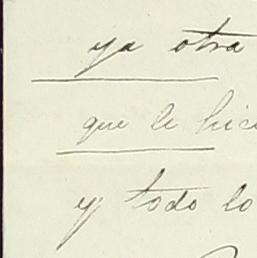 ya otra
que le hici
y todo lo